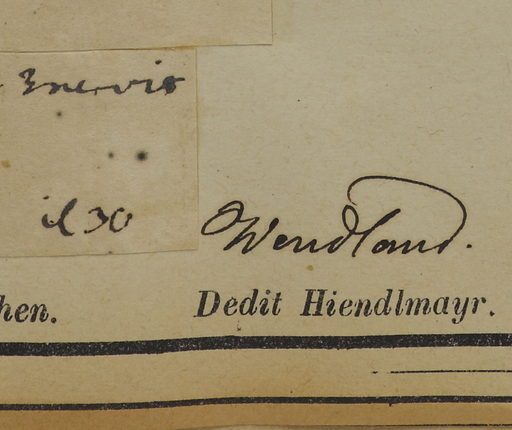 3nervis
il 30
Wendland.
hen. Dedit Hiendlmayr.